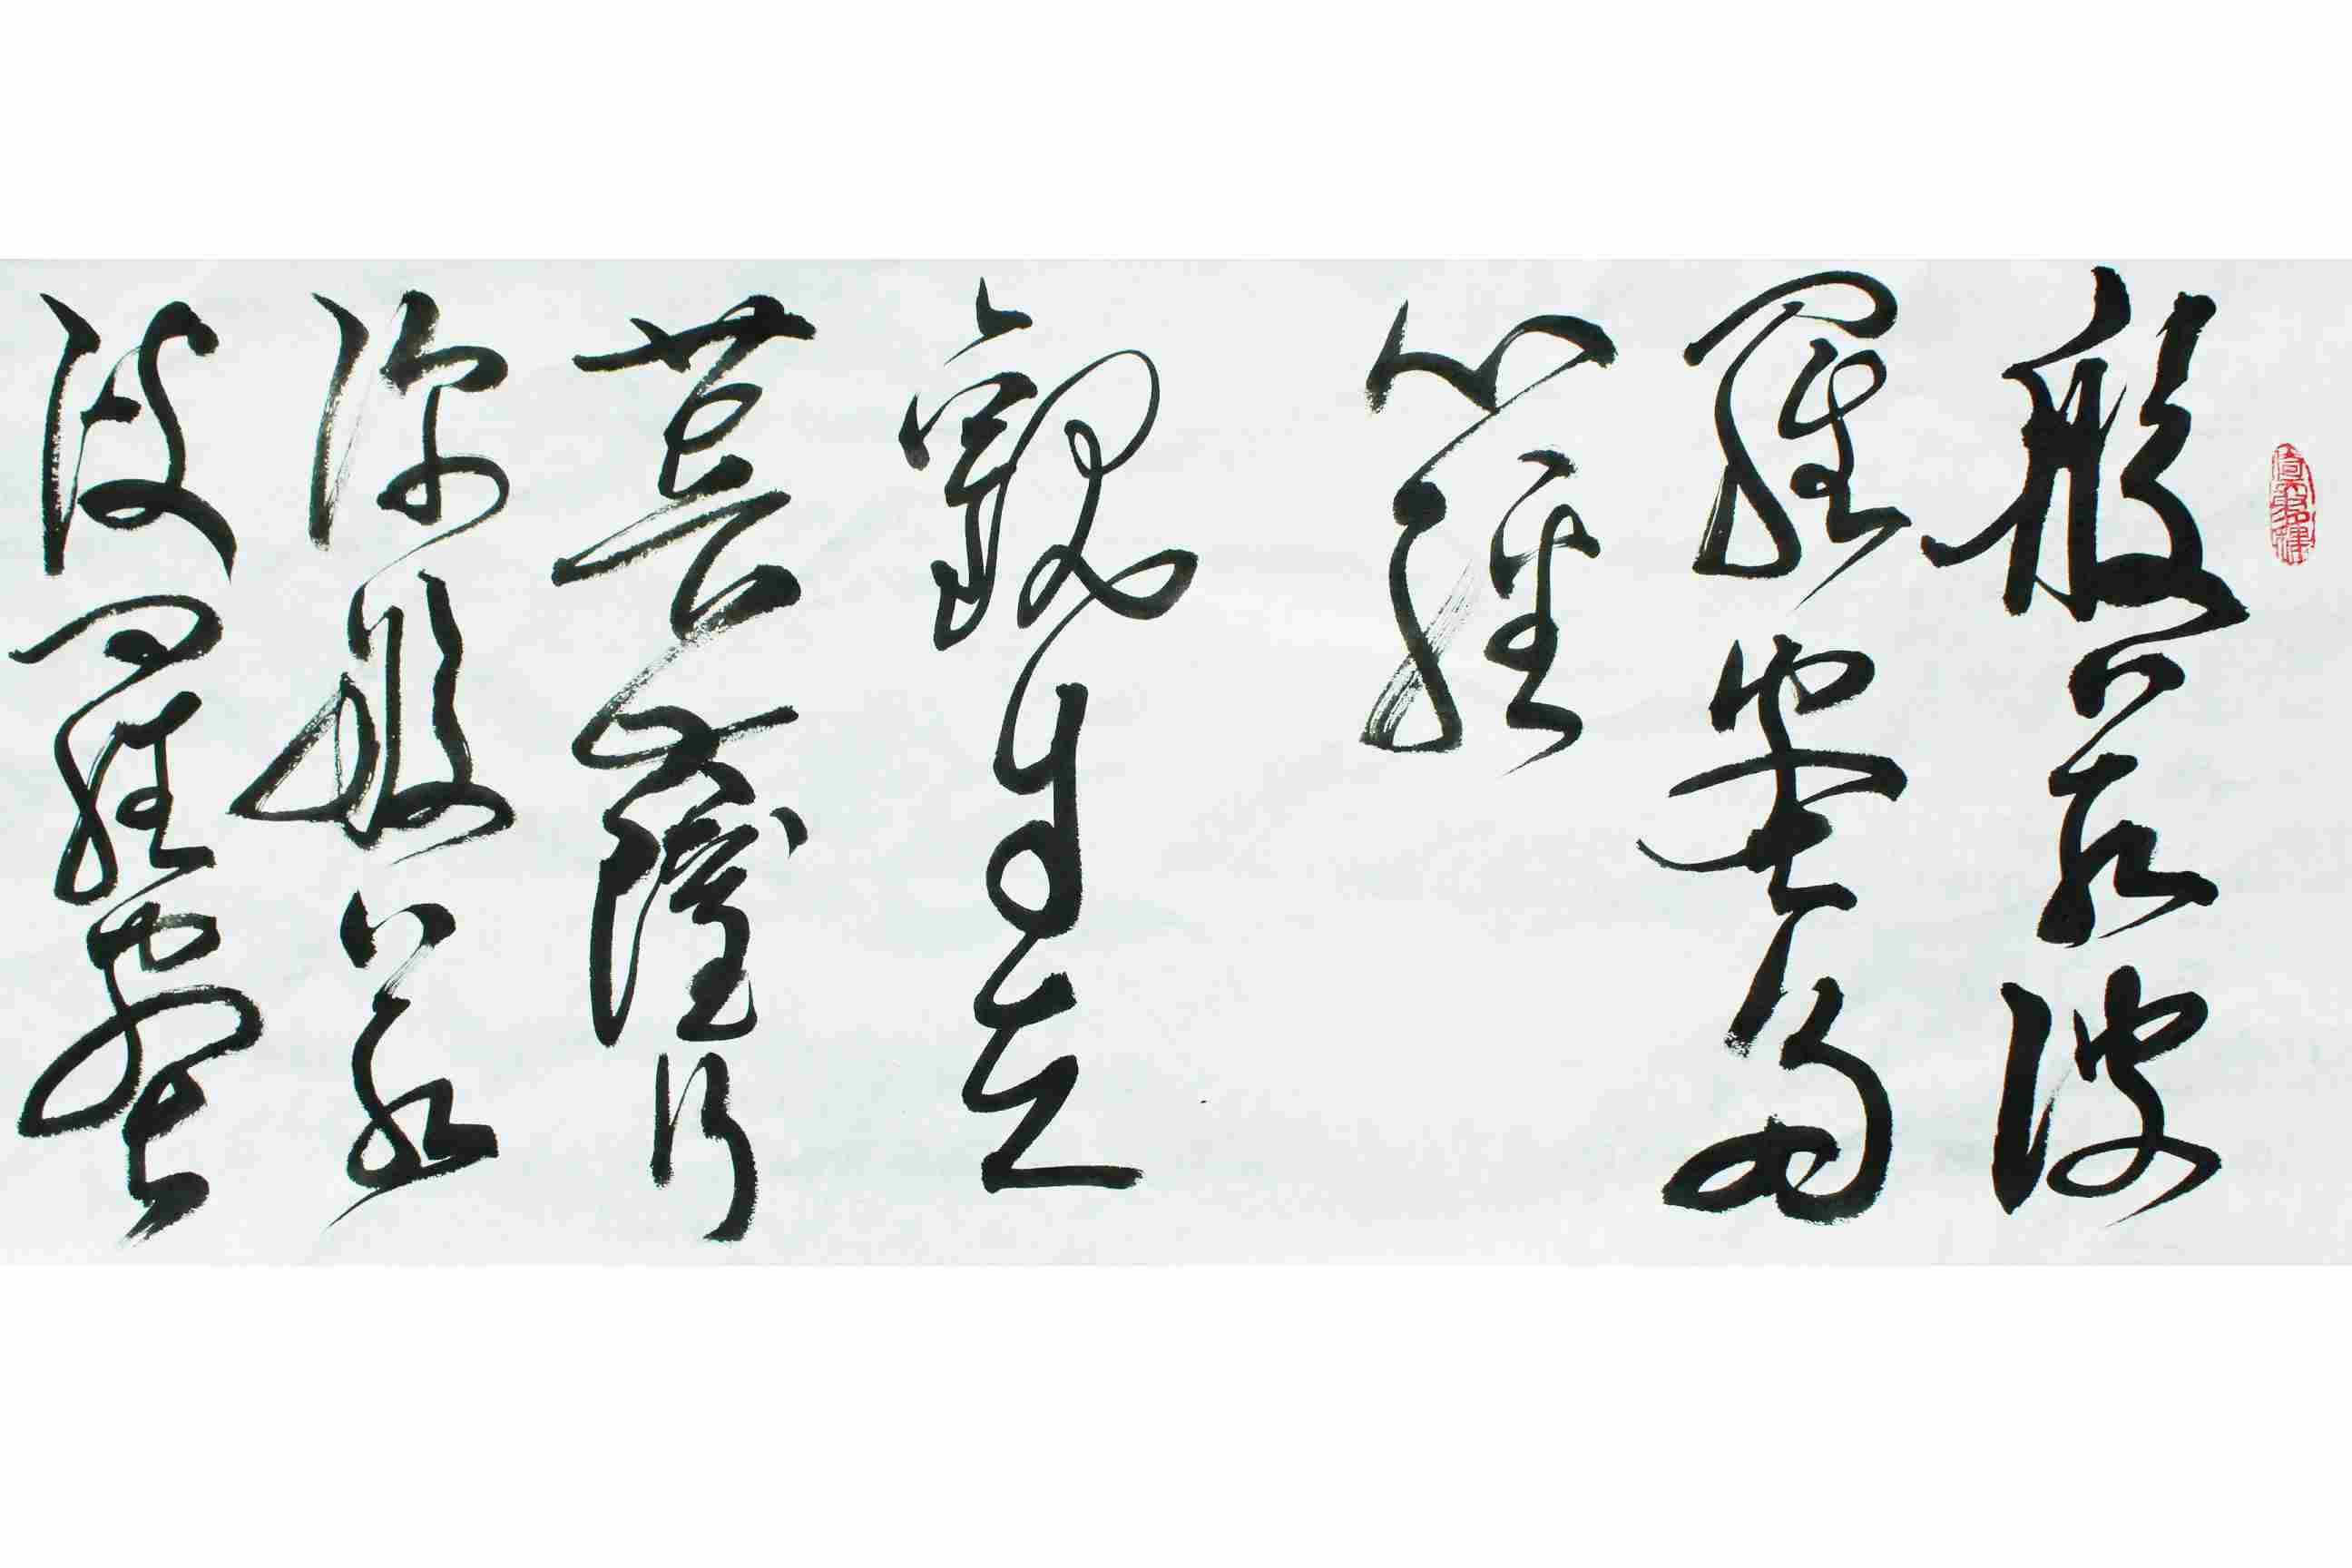 般若波
羅蜜多
心經
觀自在
菩薩行
深般若
波羅蜜